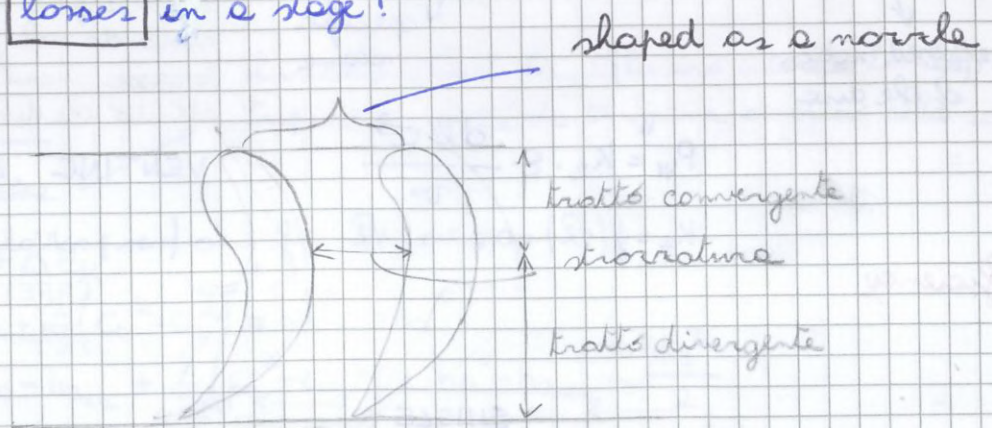 losses in a stage!
shaped as a nozzle
tratto convergente
strozzatura
tratto divergente